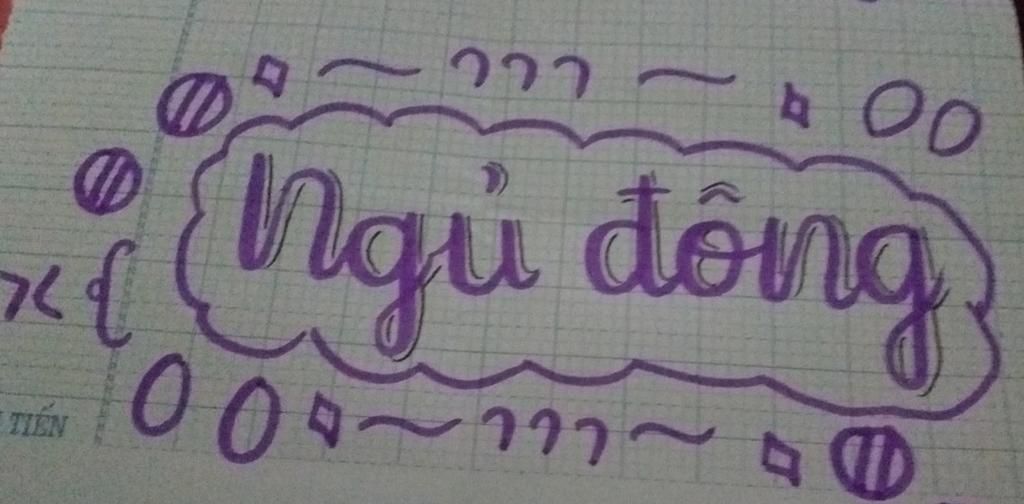 Ngủ đông
TIẾN